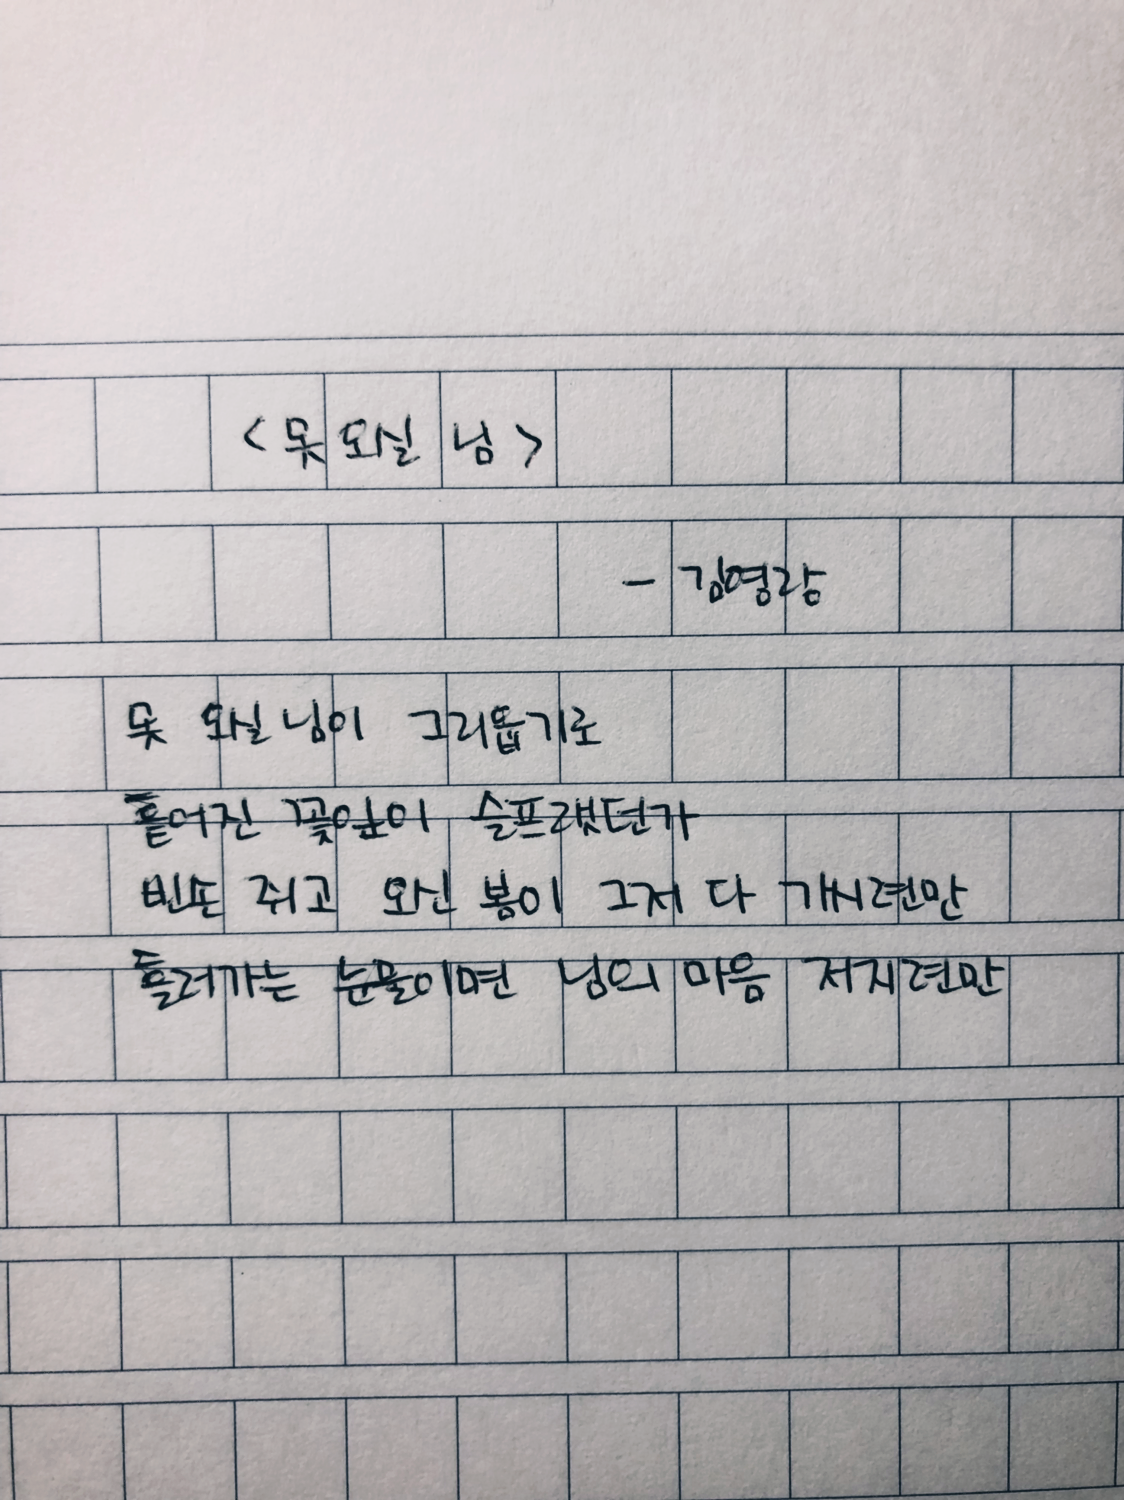 <못 오실 님>
- 김영랑
못 오실 님이 그리웁기로
흩어진 꽃잎이 슬프랬던가
빈손 쥐고 오신 봄이 그저 다 가시련만
흘러가는 눈물이면 님의 마음 저지련만